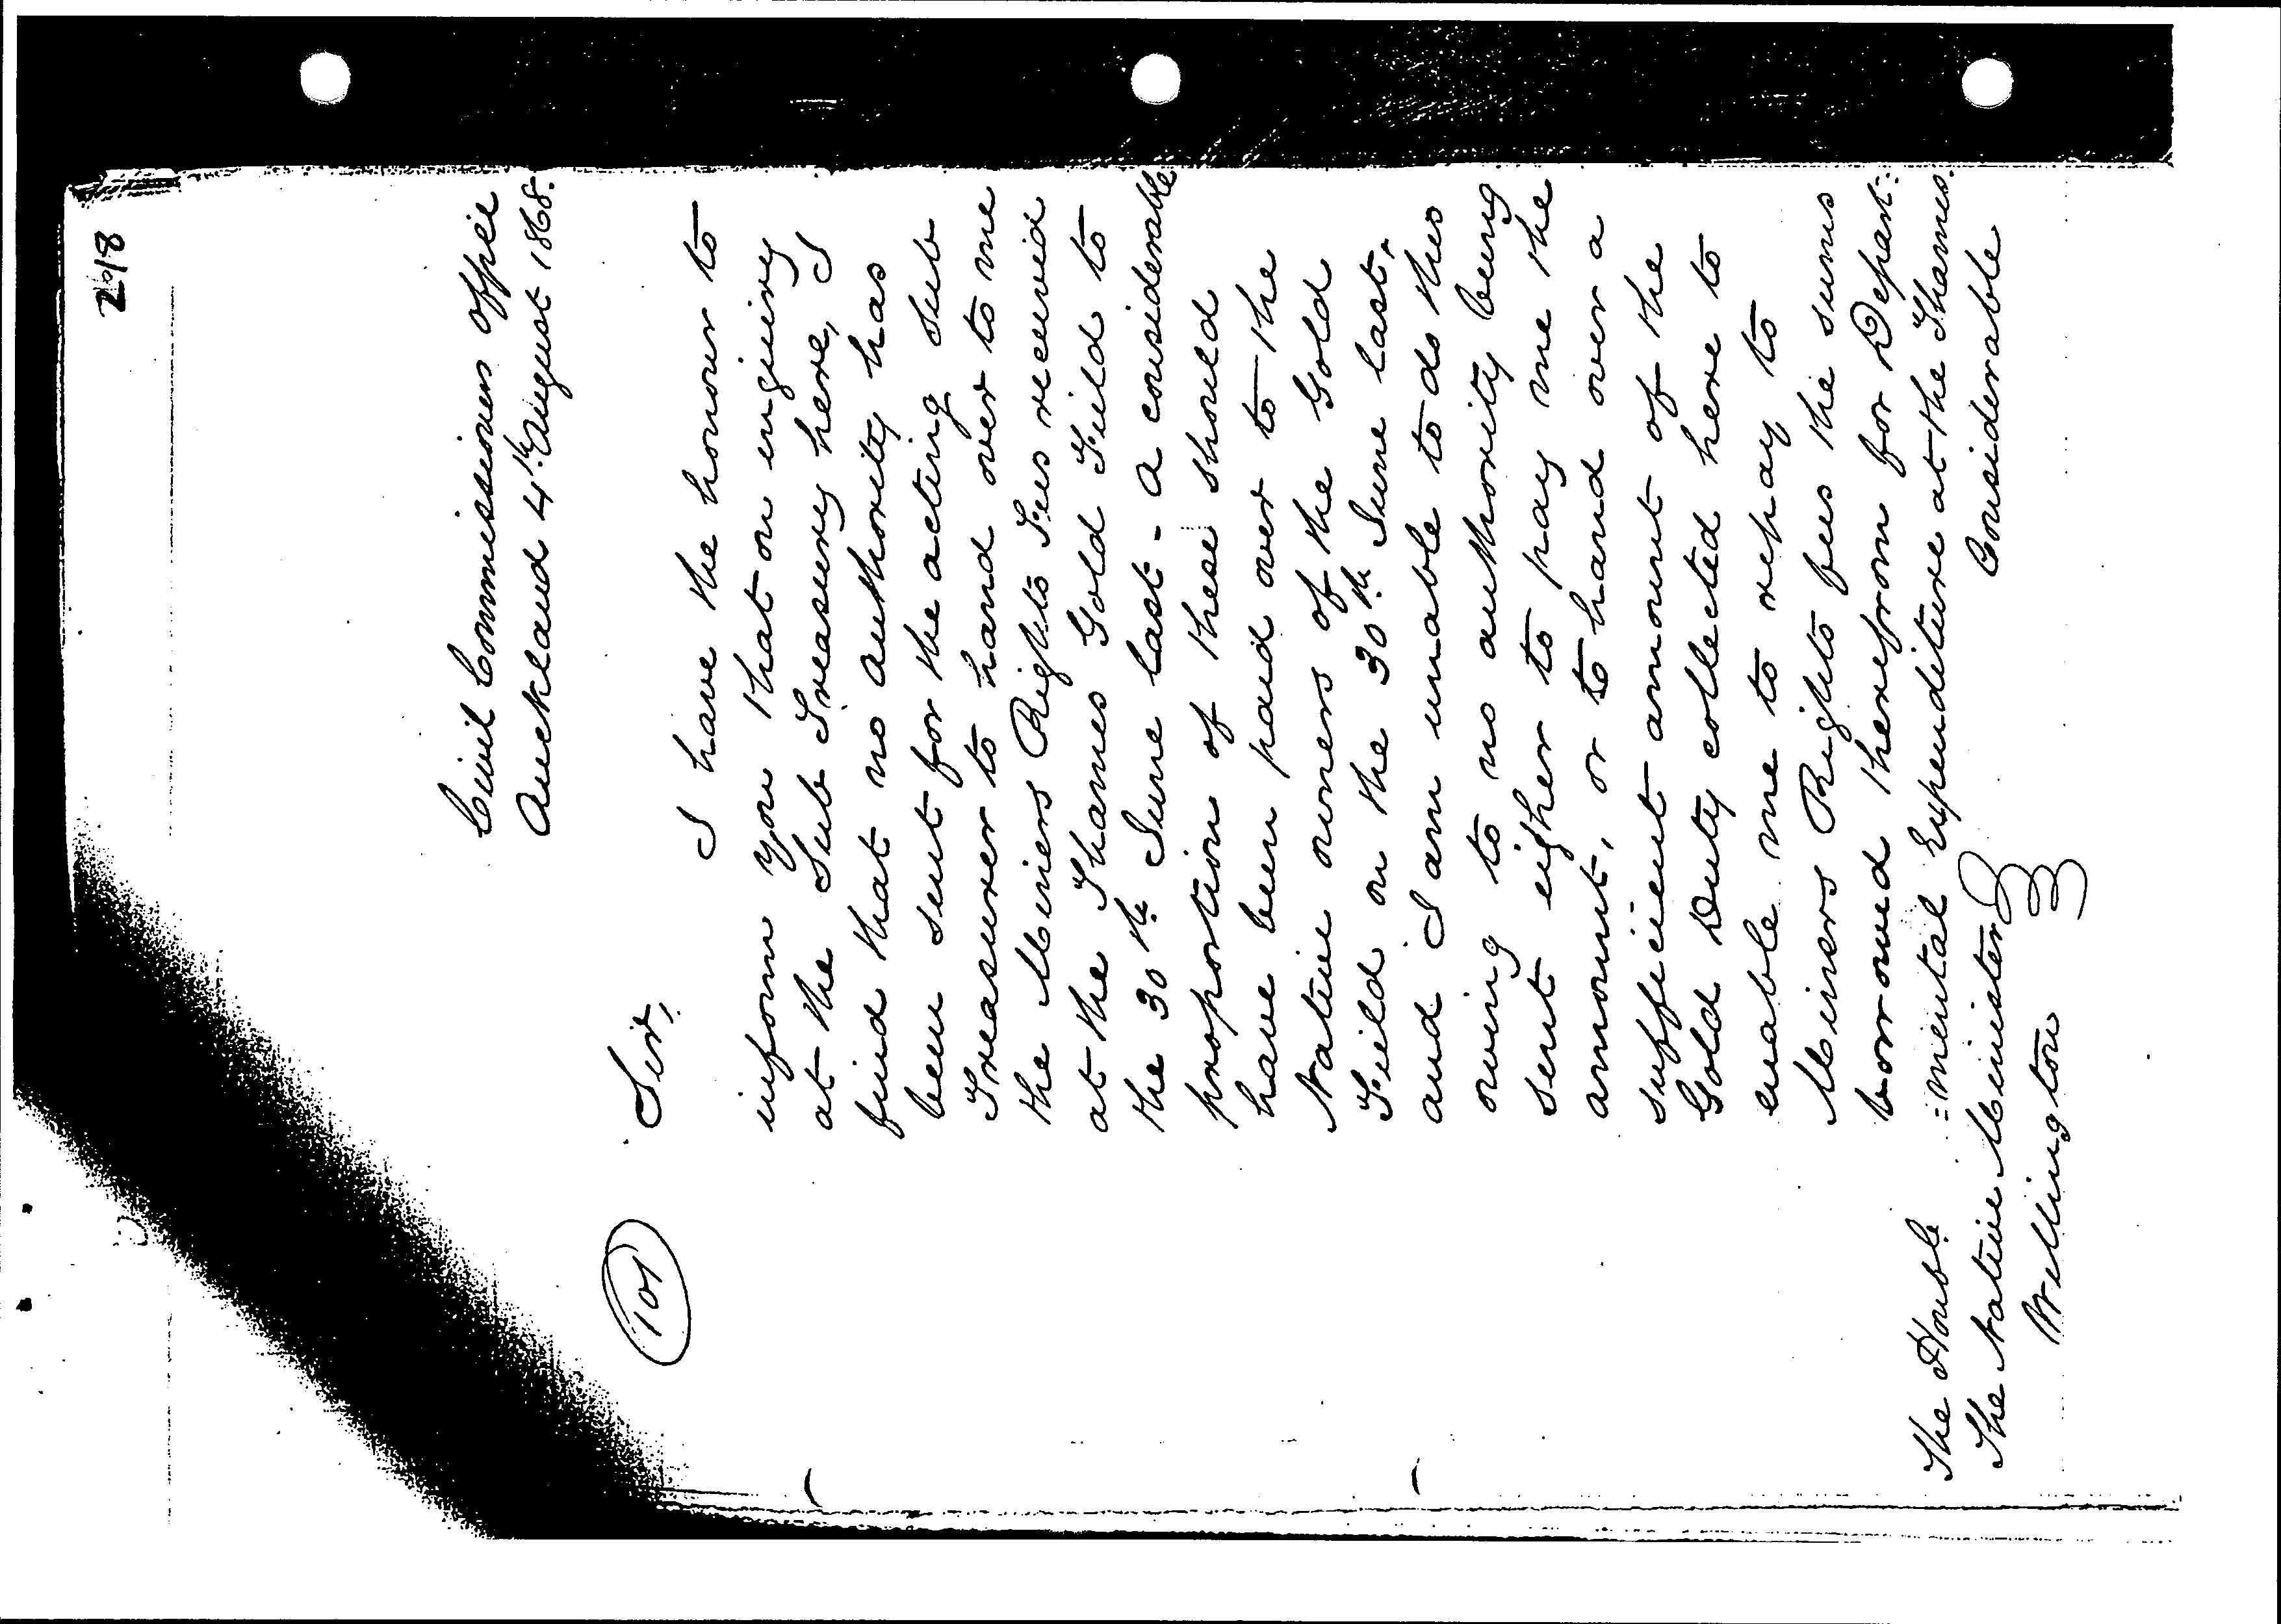 2018
Civil Commissioners Office
Auckland 4th August 1868.
Sir,
101
I have the honour to
inform you that on enquiry
at the Sub Treasury here, I
find that no authority has
been sent for the acting Sub
Treasurer to hand over to me
the Miners Rights Fees received
at the Thames Gold Field to
the 30th June last - a considerable
proportion of these should
have been paid over to the
Native owners of the Gold
Field on the 30th June last,
and I am unable to do this
owing to no authority being
sent either to pay me the
amount, or to hand over a
sufficient amount of the
Gold Duty collected here to
enable me to repay to
Miners Rights fees the sums
borrowed therefrom for Depart:
:mental Expenditure at the Thames.
Considerable
The Honble
The Native Minister
Wellington